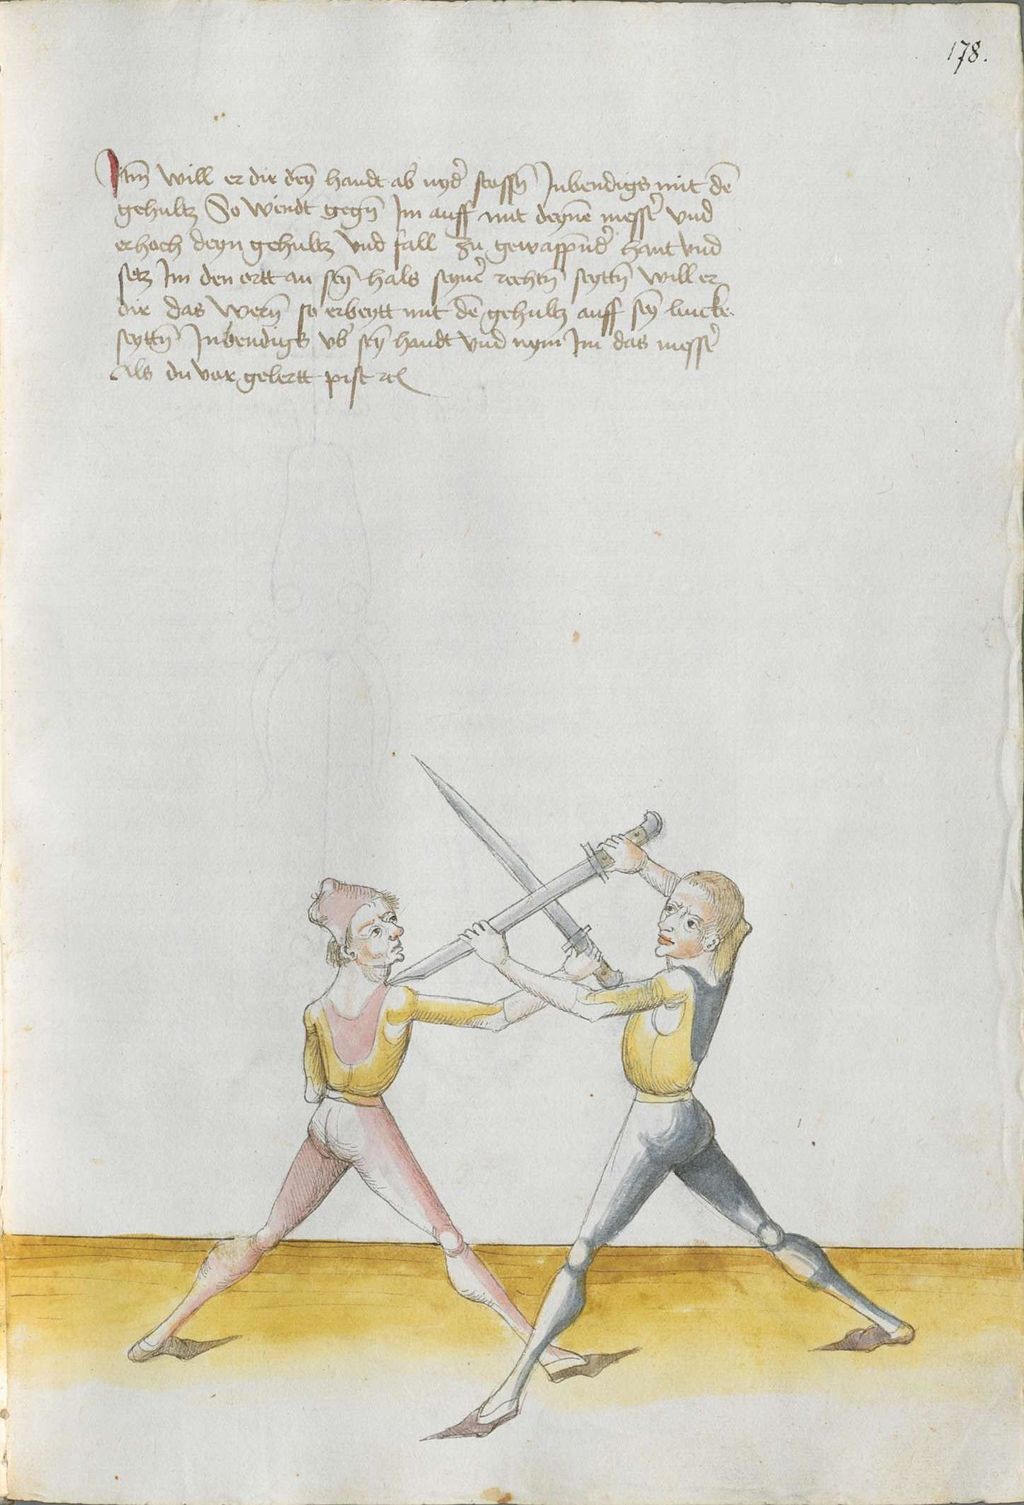 178.
Itm̄ will er dir deȳ handt ab nyd̉ stossn̄ Inbendigs mit dē
gehultz So wendt gegn̄ Im auff mit deynē mess̉ vnd
erhoch deyn gehultz vnd fall zu gewappend̉ hant vnd
setz Im den ortt an seȳ hals seyn̉ rechtn̄ seyttn̄ will er
dir das wern̄ so erbeytt mit dē gehultz auff seȳ lincke
seyttn̄ Inbendigs vb̉ seȳ handt vnd nym Im das mess̉
Als du vor gelertt pist ꝛc